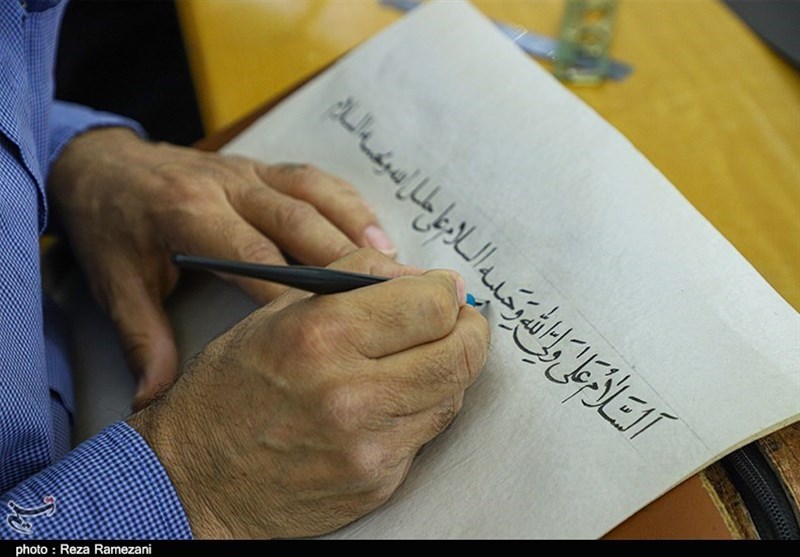 اَلسَّلامُ عَلیٰ وَلِيِّ اللهِ وَحَبیبِه السلام علی خلیل الله ونجیبه السلام
تسنیم
photo : Reza Ramezani